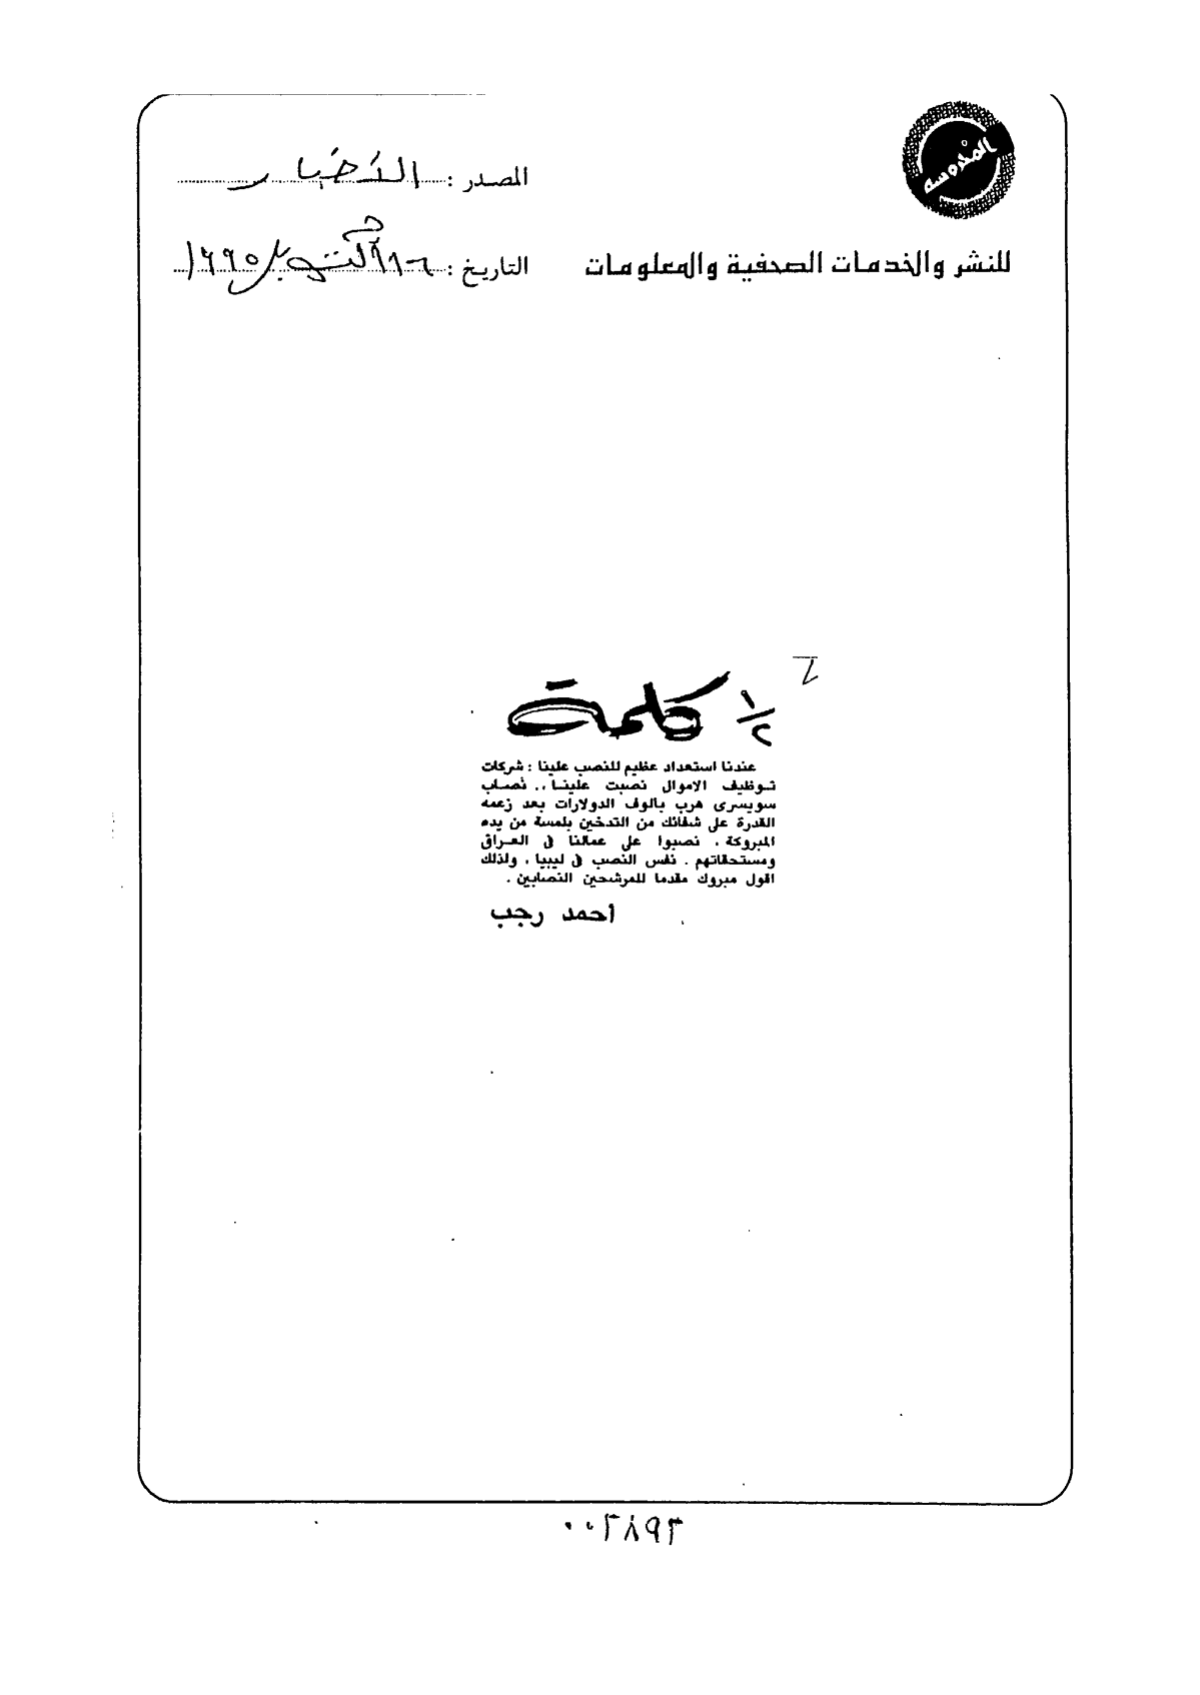 المحروسة
المصدر : الأخبار
للنشر والخدمات الصحفية والمعلومات
التاريخ : أكتوبر ١٩٩٥
١/٢ كلمة
عندنا استعداد عظيم للنصب علينا : شركات
توظيف الاموال نصبت علينا .. نصاب
سويسرى هرب بالوف الدولارات بعد زعمه
القدرة على شفائك من التدخين بلمسة من يده
المبروكة . نصبوا على عمالنا فى العراق
ومستحقاتهم . نفس النصب فى ليبيا . ولذلك
اقول مبروك مقدما للمرشحين النصابين .
أحمد رجب
٠٠٢٨٩٣